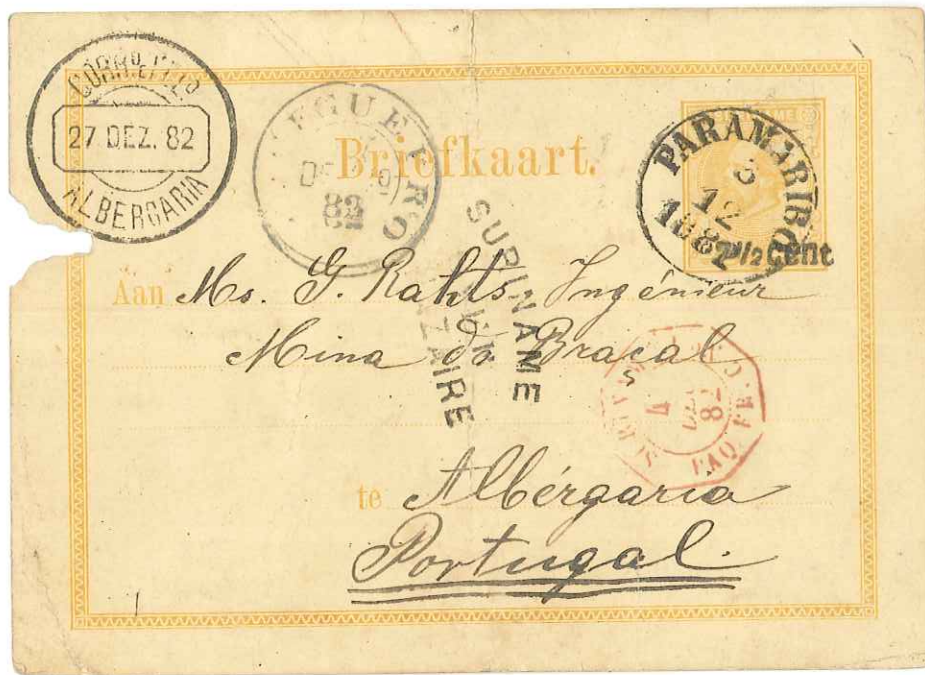 27 DEZ. 82
ALBERGARIA
Briefkaart.
PARAMARIBO
12
1882
7½ Cent
SURINAME
ZAIRE
Aan Mo. G. Rahts, Ingénieur
Mina do Braçal
4
DEC
82
PAQ. FR.
te Albérgaria
Portugal.